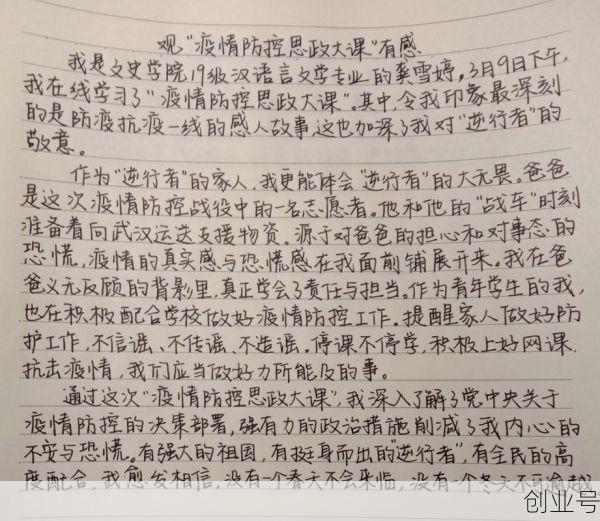 观“疫情防控思政大课”有感
我是文史学院19级汉语言文学专业的龚雪婷。3月9日下午，
我在线学习了“疫情防控思政大课”。其中，令我印象最深刻
的是防疫抗疫一线的感人故事，这也加深了我对“逆行者”的
敬意。
作为“逆行者”的家人，我更能体会“逆行者”的大无畏。爸爸
是这次疫情防控战役中的一名志愿者。他和他的“战车”时刻
准备着向武汉运送支援物资。源于对爸爸的担心和对事态的
恐慌，疫情的真实感与恐慌感在我面前铺展开来。我在爸
爸义无反顾的背影里，真正学会了责任与担当。作为青年学生的我，
也在积极配合学校做好疫情防控工作。提醒家人做好防
护工作，不信谣、不传谣、不造谣。停课不停学，积极上好网课.
抗击疫情，我们应当做好力所能及的事。
通过这次“疫情防控思政大课”，我深入了解了党中央关于
疫情防控的决策部署，强有力的政治措施削减了我内心的
不安与恐慌。有强大的祖国，有挺身而出的“逆行者”，有全民的高
度配合，我愈发相信，没有一个春天不会来临，没有一个冬天不可逾越
创业号